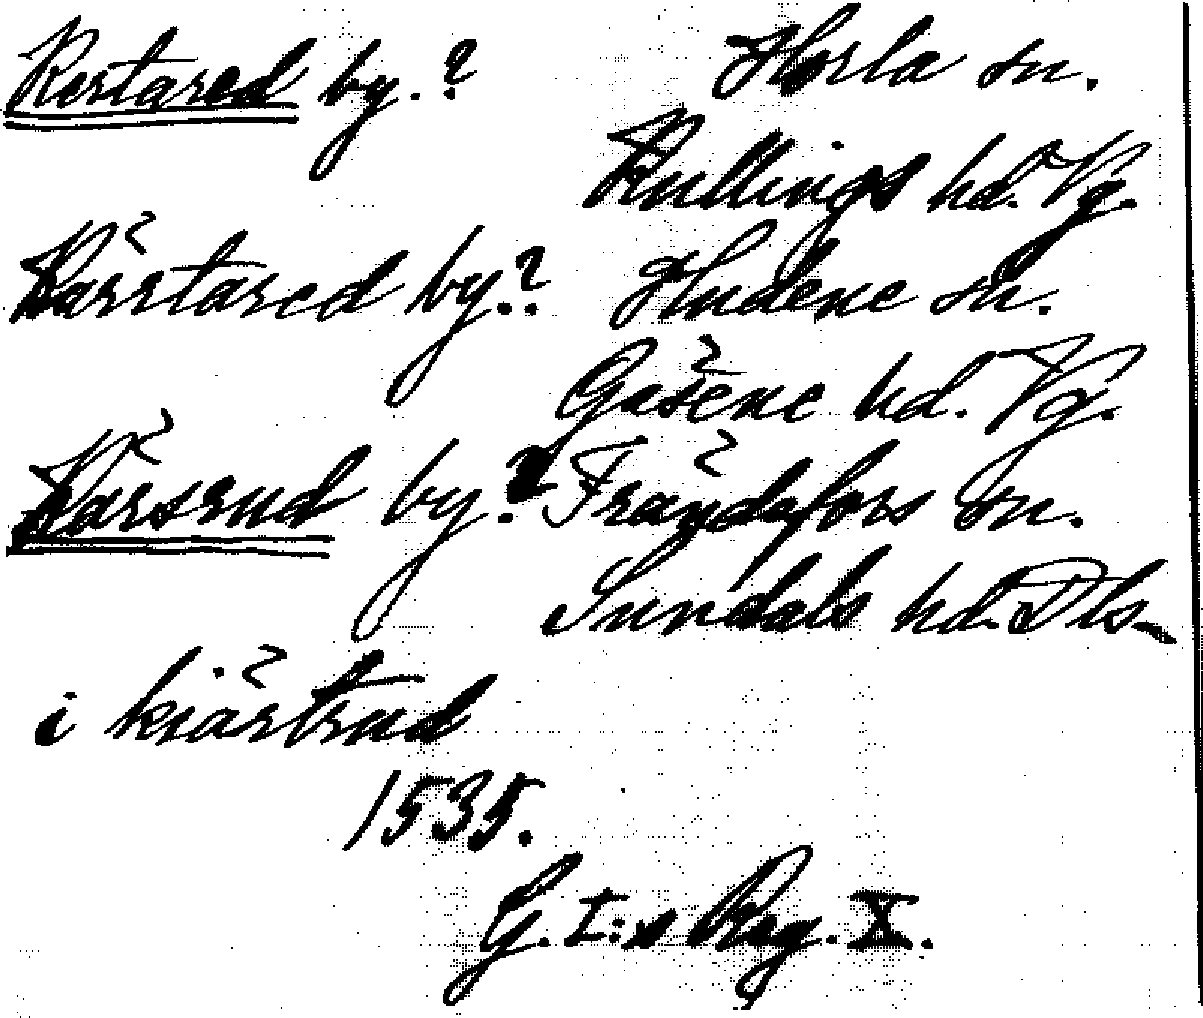 Kerstared by.? Horla sn.
Kullings hd. Vg.
Kärstared by.? Hudene sn.
Gäsene hd. Vg.
Kärsrud by.? Frändefors sn.
Sundals hd. Dls.
i kiärstrud
1535.
G. I:s Reg. X.